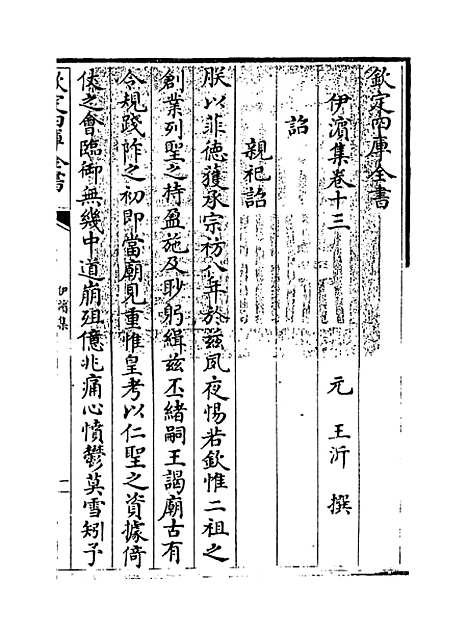 欽定四庫全書
伊濱集卷十三
元 王沂 撰
詔
親祀詔
朕以菲德獲承宗祊八年於兹夙夜惕若欽惟二祖之
創業列聖之持盈施及眇躬緝兹丕緒嗣王謁廟古有
令規踐阼之初即當廟見重惟皇考以仁聖之資據倚
俟之會臨御無幾中道崩殂億兆痛心憤鬱莫雪矧予
欽定四庫全書
伊濱集
一